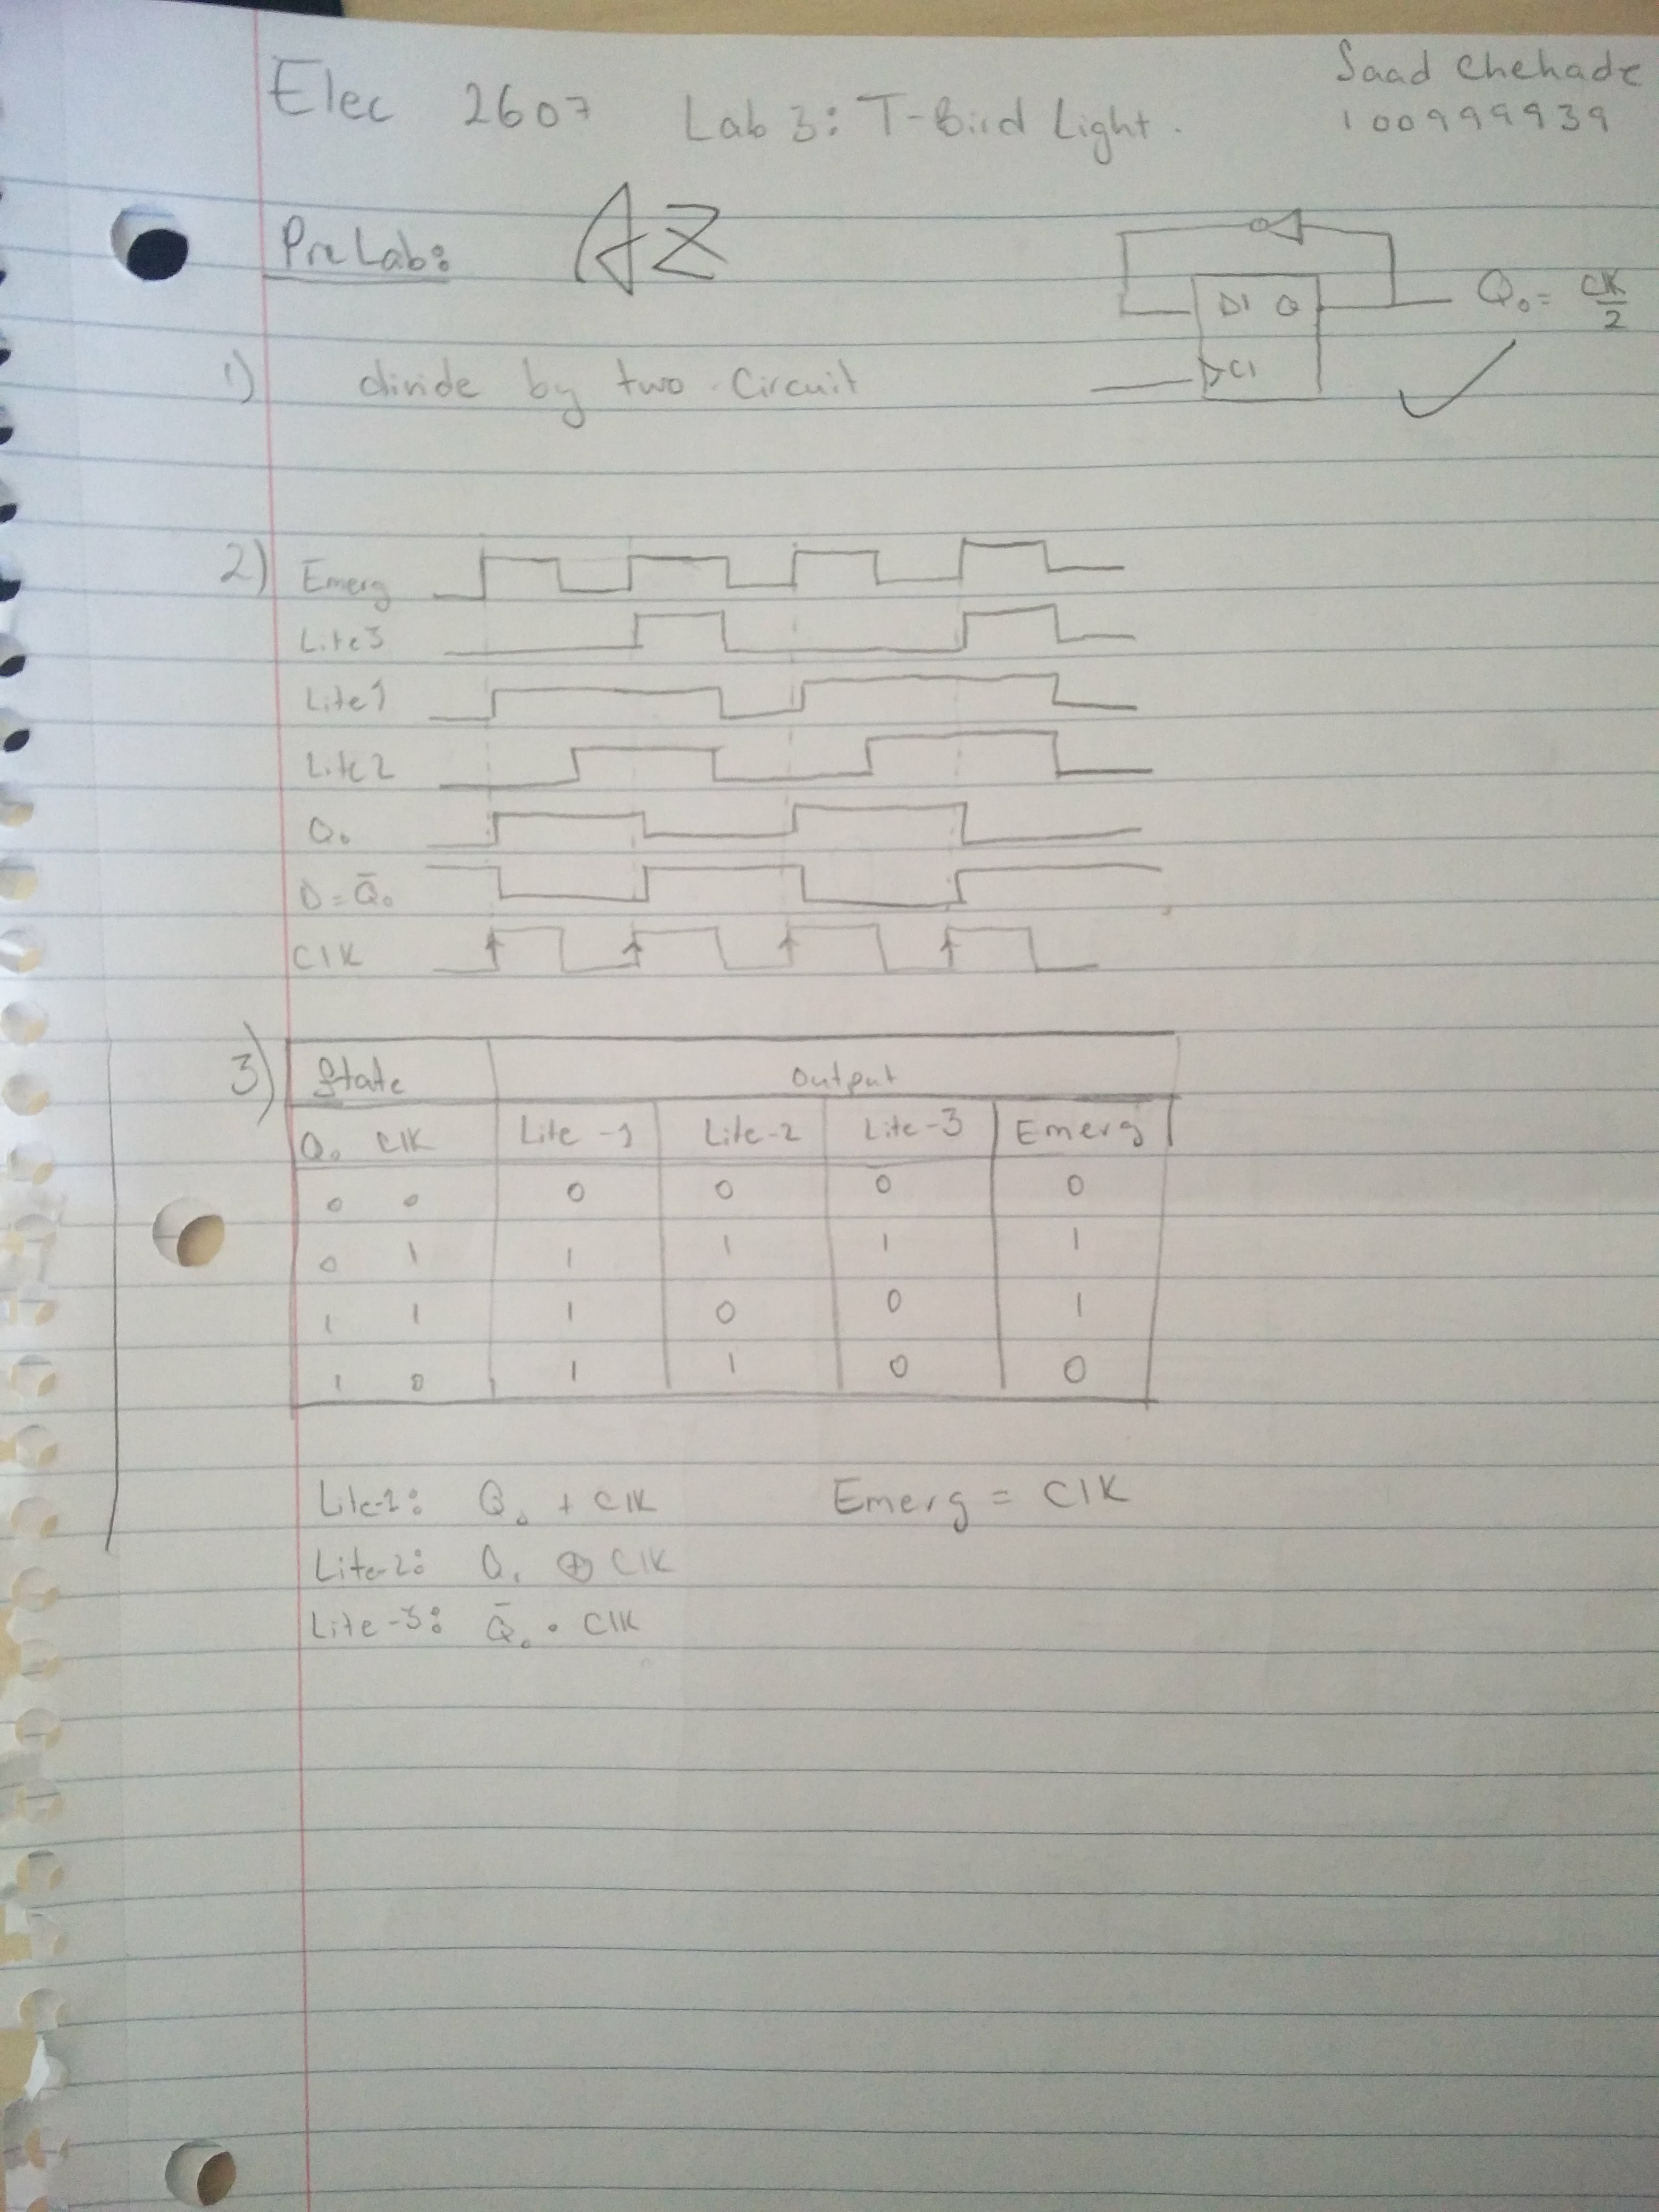 Elec 2607 Lab 3: T-Bird Light.
Saad Chehade
100999939
PreLab: AZ
D1 Q Q₀ = CK/2
C1
1) divide by two Circuit
2) Emerg
Lite3
Lite1
Lite2
Q₀
D = Q̄₀
Clk
3) State Output
Q₀ Clk Lite-1 Lite-2 Lite-3 Emerg
0 0 0 0 0 0
0 1 1 1 1 1
1 1 1 0 0 1
1 0 1 1 0 0
Lite-1: Q₀ + Clk Emerg = Clk
Lite-2: Q₀ ⊕ Clk
Lite-3: Q̄₀ • Clk